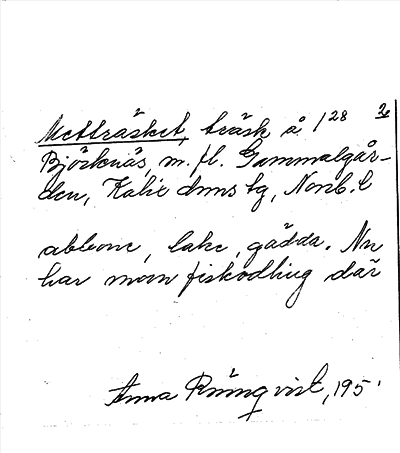 Metträsket, träsk å 1²⁸ 2
Björknäs, m. fl. Gammalgår-
den, Kalix dnms tg, Norrb. l
abborre, lake, gädda. Nu
har man fiskodling där
Anna Rönnqvist, 195